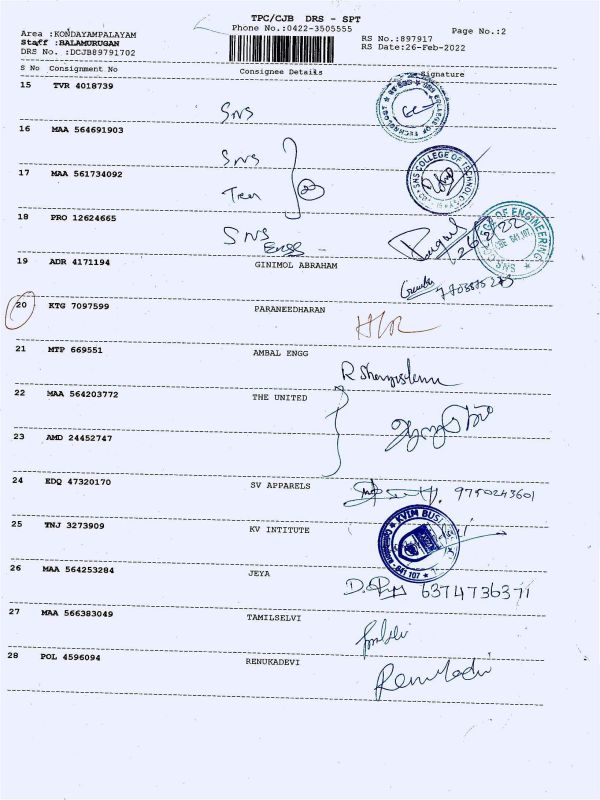 TPC/CJB DRS - SPT
Phone No.:0422-3505555
Page No.:2
Area :KONDAYAMPALAYAM
Staff :BALAMURUGAN
DRS No. :DCJB89791702
RS No.:897917
RS Date:26-Feb-2022
S No Consignment No Consignee Details Signature
15 TVR 4018739
SNS
16 MAA 564691903
SNS
17 MAA 561734092
SNS COLLEGE OF TECHNOLOGY
18 PRO 12624665
SNS
Engg
26/2/22
19 ADR 4171194 GINIMOL ABRAHAM
20 KTG 7097599 PARANEEDHARAN
21 MTP 669551 AMBAL ENGG
22 MAA 564203772 THE UNITED
23 AMD 24452747
24 EDQ 47320170 SV APPARELS
9750243601
25 TNJ 3273909 KV INTITUTE
KVIM BUSI
641 107
26 MAA 564253284 JEYA
6374736371
27 MAA 566383049 TAMILSELVI
28 POL 4596094 RENUKADEVI
Renukadevi